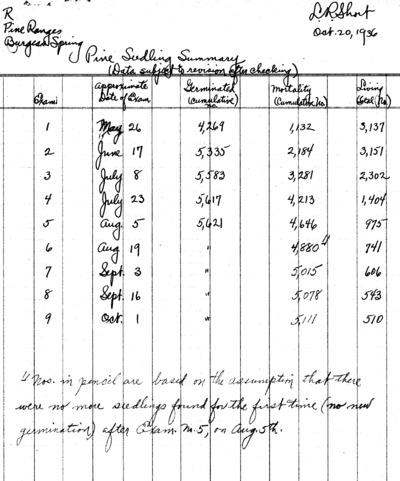 R
Pine Ranges
Burgess Spring
L.R. Short
Oct. 20, 1936
Pine Seedling Summary
(Data subject to revision after checking)
Exam: Approximate Date of Exam Germinated (cumulative) no. Mortality (Cumulative No) Living total (No)
1 May 26 4,269 1,132 3,137
2 June 17 5,335 2,184 3,151
3 July 8 5,583 3,281 2,302
4 July 23 5,617 4,213 1,404
5 Aug. 5 5,621 4,646 975
6 Aug 19 " 4,880 1/ 741
7 Sept. 3 " 5,015 606
8 Sept. 16 " 5,078 543
9 Oct. 1 " 5,111 510
1/ Nos. in pencil are based on the assumption that there
were no more seedlings found for the first time (no new
germination) after Exam. No. 5, on Aug. 5th.